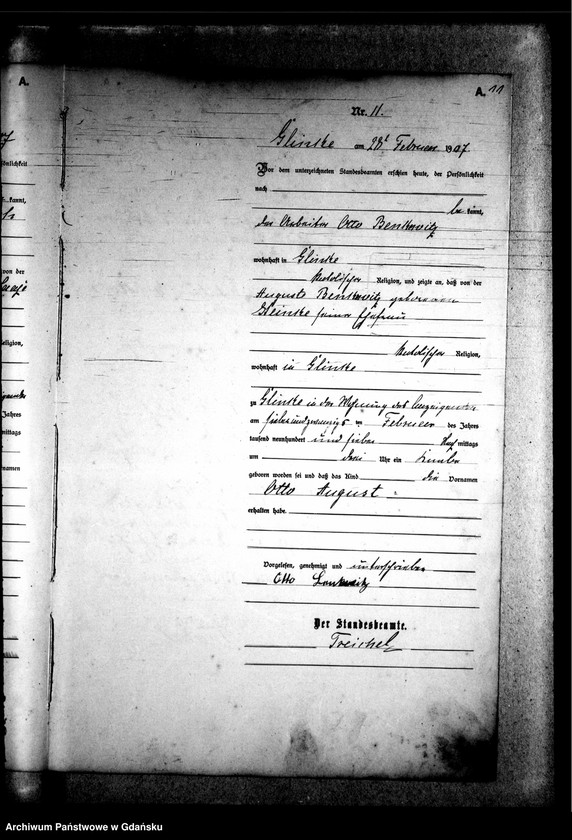 A.
A. 11
Nr. 11.
Glinke am 28t Februar 1907.
Vor dem unterzeichneten Standesbeamten erschien heute, der Persönlichkeit
nach
be kannt,
der Arbeiter Otto Benkowitz
wohnhaft in Glinke
katholischer Religion, und zeigte an, daß von der
Auguste Benkowitz geborenen
seiner Ehefrau
katholischer Religion,
wohnhaft in Glinke
zu Glinke in der Wohnung des Anzeigenden
am siebenundzwanzigs ten Februar des Jahres
tausend neunhundert und sieben Nach mittags
um drei Uhr ein Knabe
geboren worden sei und daß das Kind die Vornamen
Otto August
erhalten habe.
Vorgelesen, genehmigt und unterschrieben
Otto
Der Standesbeamte.
Treichel
Archiwum Państwowe w Gdańsku